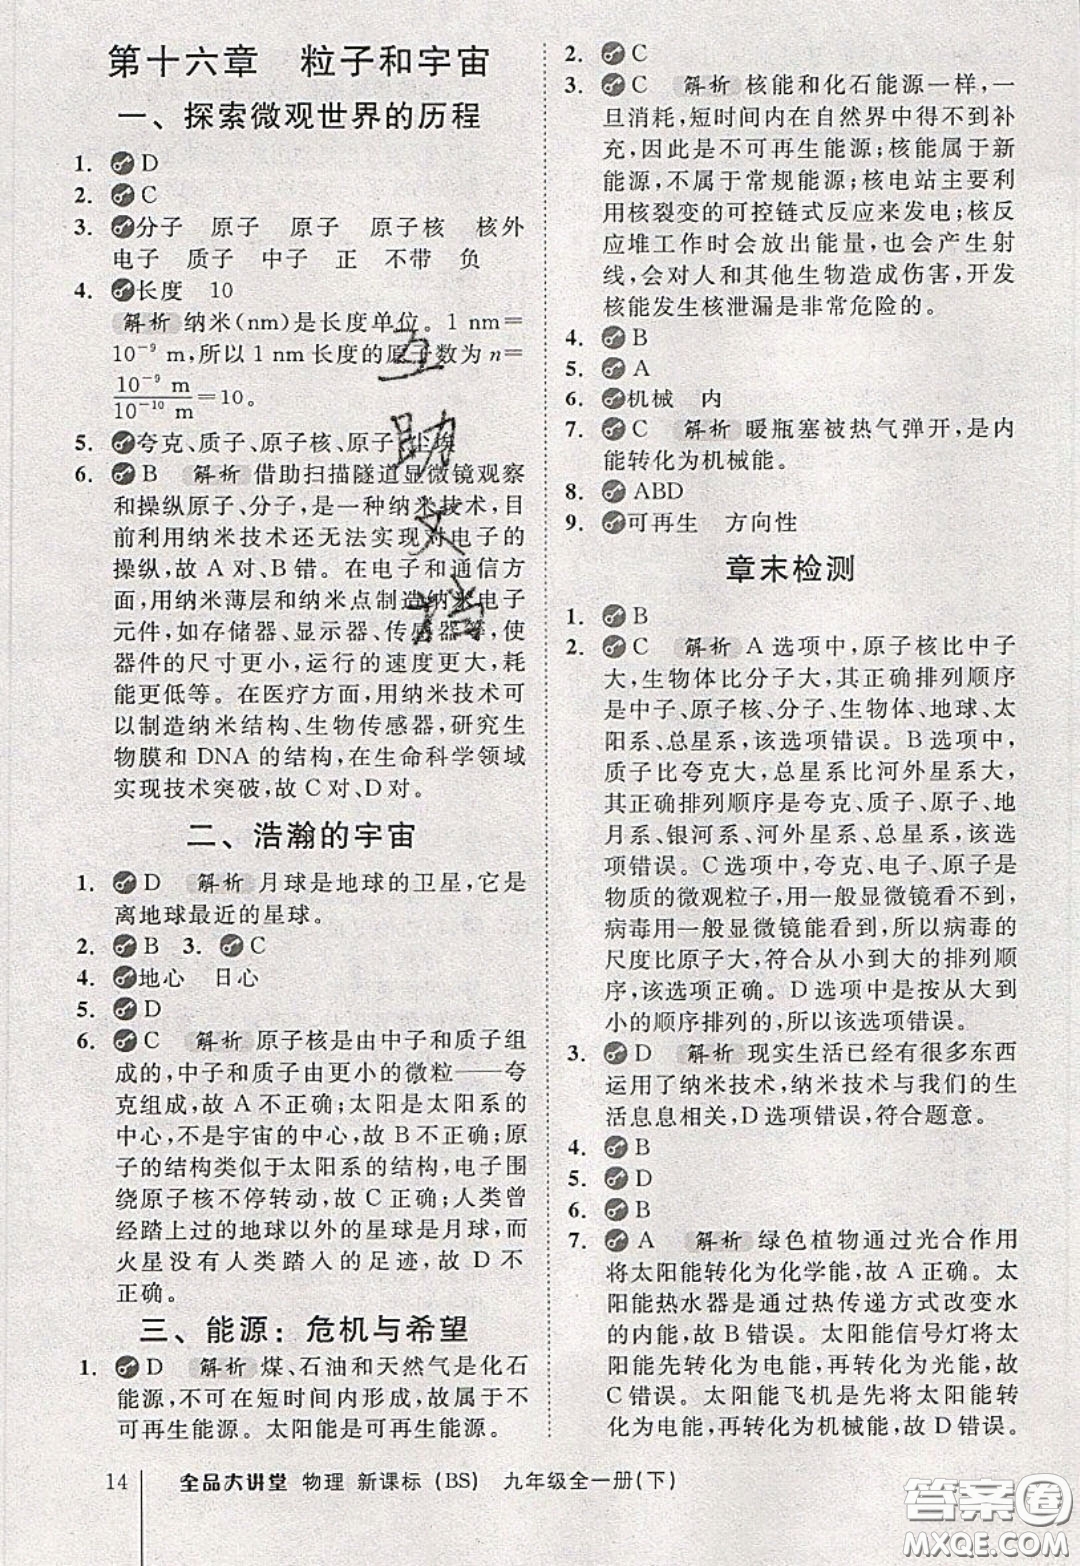 第十六章 粒子和宇宙
一、探索微观世界的历程
1. D
2. C
3. 分子 原子 原子 原子核 核外
电子 质子 中子 正 不带 负
4. 长度 10
解析 纳米(nm)是长度单位。1 nm=
10⁻⁹ m,所以 1 nm 长度的原子数为 n=
10⁻⁹ m/10⁻¹⁰ m=10。
5. 夸克、质子、原子核、原子、尘埃
6. B 解析 借助扫描隧道显微镜观察
和操纵原子、分子,是一种纳米技术,目
前利用纳米技术还无法实现对电子的
操纵,故 A 对、B 错。在电子和通信方
面,用纳米薄层和纳米点制造纳米电子
元件,如存储器、显示器、传感器等,使
器件的尺寸更小,运行的速度更大,耗
能更低等。在医疗方面,用纳米技术可
以制造纳米结构、生物传感器,研究生
物膜和 DNA 的结构,在生命科学领域
实现技术突破,故 C 对、D 对。
二、浩瀚的宇宙
1. D 解析 月球是地球的卫星,它是
离地球最近的星球。
2. B 3. C
4. 地心 日心
5. D
6. C 解析 原子核是由中子和质子组
成的,中子和质子由更小的微粒——夸
克组成,故 A 不正确;太阳是太阳系的
中心,不是宇宙的中心,故 B 不正确;原
子的结构类似于太阳系的结构,电子围
绕原子核不停转动,故 C 正确;人类曾
经踏上过的地球以外的星球是月球,而
火星没有人类踏入的足迹,故 D 不
正确。
三、能源:危机与希望
1. D 解析 煤、石油和天然气是化石
能源,不可在短时间内形成,故属于不
可再生能源。太阳能是可再生能源。
2. C
3. C 解析 核能和化石能源一样,一
旦消耗,短时间内在自然界中得不到补
充,因此是不可再生能源;核能属于新
能源,不属于常规能源;核电站主要利
用核裂变的可控链式反应来发电;核反
应堆工作时会放出能量,也会产生射
线,会对人和其他生物造成伤害,开发
核能发生核泄漏是非常危险的。
4. B
5. A
6. 机械 内
7. C 解析 暖瓶塞被热气弹开,是内
能转化为机械能。
8. ABD
9. 可再生 方向性
章末检测
1. B
2. C 解析 A 选项中,原子核比中子
大,生物体比分子大,其正确排列顺序
是中子、原子核、分子、生物体、地球、太
阳系、总星系,该选项错误。B 选项中,
质子比夸克大,总星系比河外星系大,
其正确排列顺序是夸克、质子、原子、地
月系、银河系、河外星系、总星系,该选
项错误。C 选项中,夸克、电子、原子是
物质的微观粒子,用一般显微镜看不到,
病毒用一般显微镜能看到,所以病毒的
尺度比原子大,符合从小到大的排列顺
序,该选项正确。D 选项中是按从大到
小的顺序排列的,所以该选项错误。
3. D 解析 现实生活已经有很多东西
运用了纳米技术,纳米技术与我们的生
活息息相关,D 选项错误,符合题意。
4. B
5. D
6. B
7. A 解析 绿色植物通过光合作用
将太阳能转化为化学能,故 A 正确。太
阳能热水器是通过热传递方式改变水
的内能,故 B 错误。太阳能信号灯将太
阳能先转化为电能,再转化为光能,故
C 错误。太阳能飞机是先将太阳能转
化为电能,再转化为机械能,故 D 错误。
14 全品大讲堂 物理 新课标(BS) 九年级全一册(下)
互助文档
答案圈
MXQE.COM